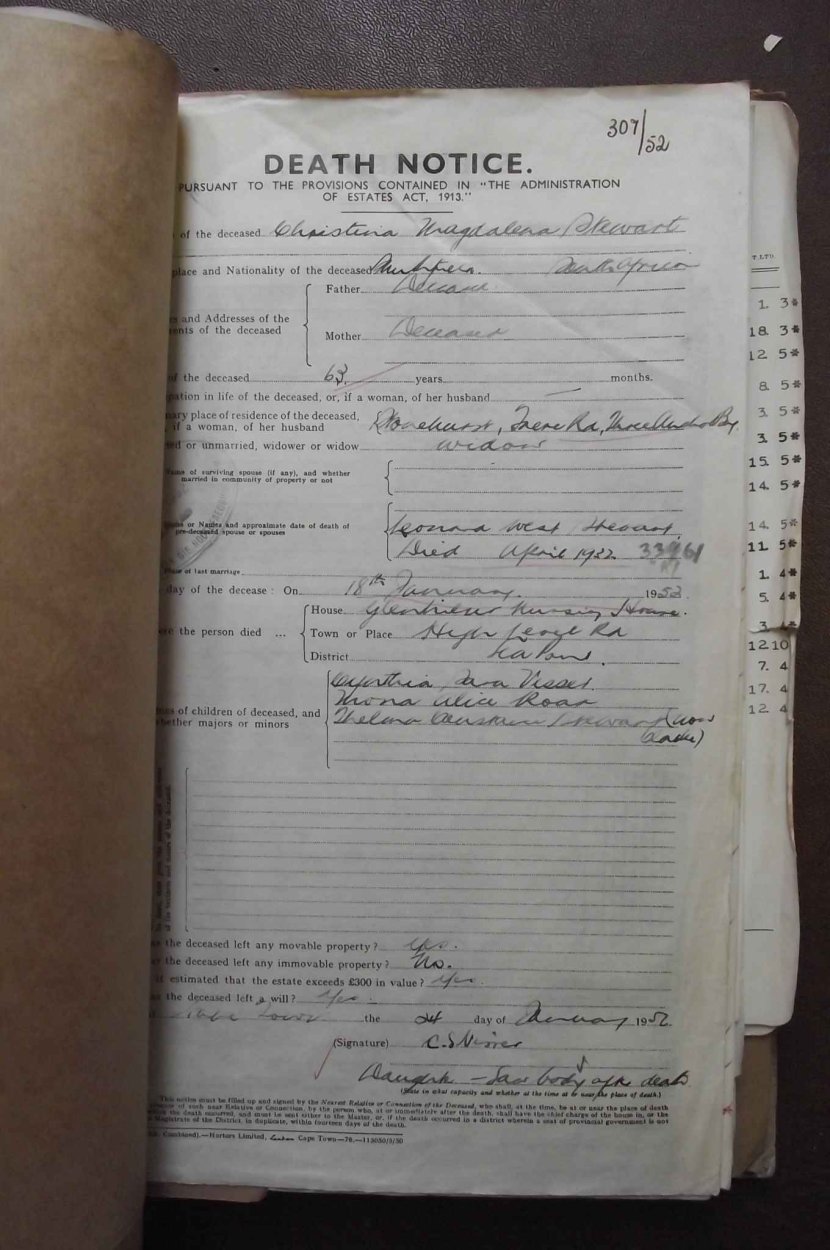 307/52
DEATH NOTICE.
PURSUANT TO THE PROVISIONS CONTAINED IN "THE ADMINISTRATION
OF ESTATES ACT, 1913."
of the deceased Christina Magdalena Stewart
place and Nationality of the deceased South Africa
Father Deceased
s and Addresses of the
ents of the deceased
Mother Deceased
of the deceased 63 years months.
pation in life of the deceased, or, if a woman, of her husband —
ary place of residence of the deceased,
if a woman, of her husband Stonehurst, Rd,
ed or unmarried, widower or widow widow
Name of surviving spouse (if any), and whether
married in community of property or not
or Names and approximate date of death of
pre-deceased spouse or spouses
Leonard West Stewart
Died April 1932 33461
of last marriage
day of the decease: On 18th January 1952.
House Nursing House.
ere the person died ... Town or Place High Level Rd
District Sea Point.
Cynthia Visser
Mona Alice
es of children of deceased, and
whether majors or minors
Thelma Stewart (now
)
the deceased left any movable property? Yes.
the deceased left any immovable property? No.
it estimated that the estate exceeds £300 in value? Yes
the deceased left a will? Yes
Town the 24 day of January 1952.
(Signature) C.S Visser
Daught — Saw body after death
(State in what capacity and whether at the time at or near the place of death.)
This notice must be filled up and signed by the Nearest Relative or Connection of the Deceased, who shall, at the time, be at or near the place of death
of such near Relative or Connection, by the person who, at or immediately after the death, shall have the chief charge of the house in, or the
the death occurred, and must be sent either to the Master, or, if the death occurred in a district wherein a seat of provincial government is not
Magistrate of the District, in duplicate, within fourteen days of the death.
Combined).—Hortors Limited, Cape Town—78.—113050/5/50
T. LTD.
1. 3*
18. 3*
12 5*
8 5*
3. 5*
3. 5*
15. 5*
14. 5*
14. 5*
11. 5*
1. 4*
5. 4*
3. 4*
12.10
7. 4
17. 4
12. 4